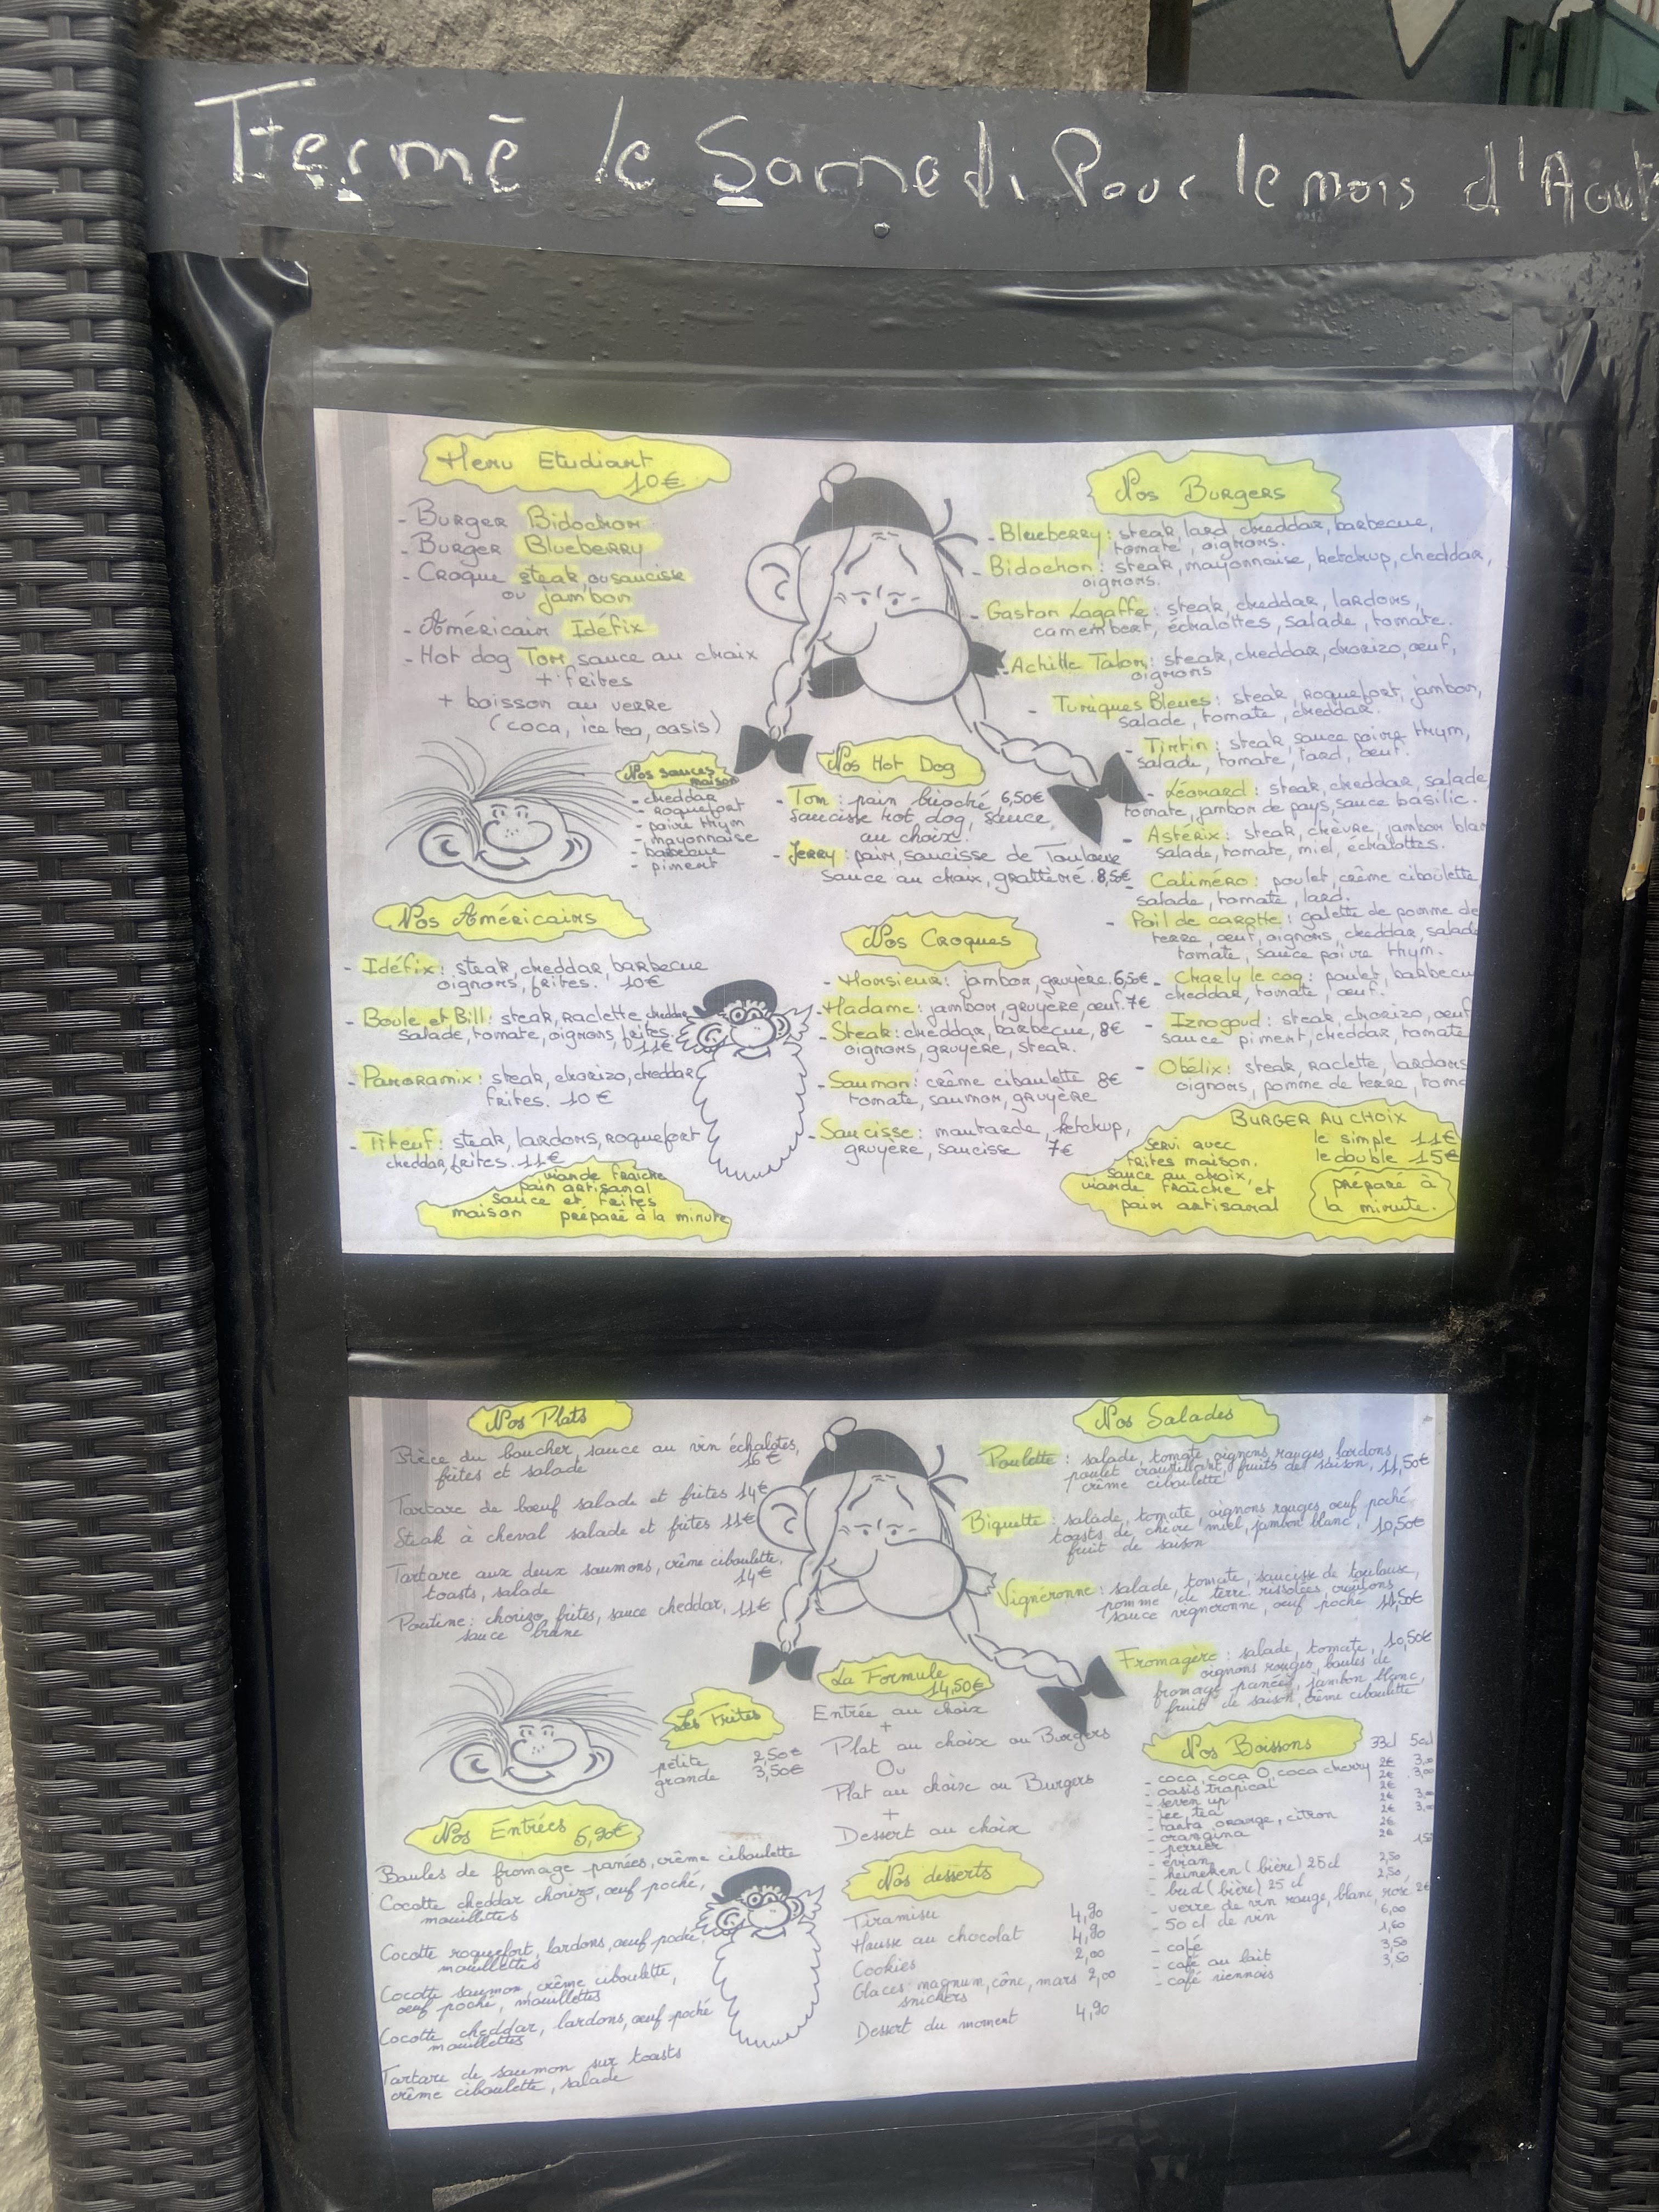 Fermé le Samedi Pour le mois d'Aout
Menu Etudiant
10€
- Burger Bidochon
- Burger Blueberry
- Croque steak, ou saucisse
ou jambon
- Américain Idéfix
- Hot dog Tom, sauce au choix
+ frites
+ boisson au verre
(coca, ice tea, oasis)
Nos sauces
maison
- cheddar
- roquefort
- poivre thym
- mayonnaise
- barbecue
- piment
Nos Américains
- Idéfix : steak, cheddar, barbecue
oignons, frites. 10€
- Boule et Bill : steak, raclette cheddar
salade, tomate, oignons, frites.
11€
- Panoramix : steak, chorizo, cheddar
frites. 10€
- Titeuf : steak, lardons, roquefort
cheddar, frites. 11€
viande fraîche
pain artisanal
sauce et frites
maison préparé à la minute
Nos Hot Dog
- Tom : pain brioché 6,50€
saucisse hot dog, sauce
au choix.
- Jerry : pain, saucisse de Toulouse
sauce au choix, grattiné. 8,50€
Nos Croques
- Monsieur : jambon, gruyère. 6,50€
- Madame : jambon, gruyère, œuf. 7€
- Steak : cheddar, barbecue, 8€
oignons, gruyère, steak.
- Saumon : crème ciboulette 8€
tomate, saumon, gruyère
- Saucisse : moutarde, ketchup,
gruyère, saucisse 7€
Nos Burgers
- Blueberry : steak, lard, cheddar, barbecue,
tomate, oignons.
- Bidochon : steak, mayonnaise, ketchup, cheddar,
oignons.
- Gaston Lagaffe : steak, cheddar, lardons,
camembert, échalottes, salade, tomate.
- Achille Talon : steak, cheddar, chorizo, œuf,
oignons
- Tuniques Bleues : steak, roquefort, jambon,
salade, tomate, cheddar.
- Tintin : steak, sauce poivre thym,
salade, tomate, lard, œuf.
- Léonard : steak, cheddar, salade
tomate, jambon de pays, sauce basilic.
- Astérix : steak, chèvre, jambon blan
salade, tomate, miel, échalottes.
- Caliméro : poulet, crème ciboulette
salade, tomate, lard.
- Poil de carotte : galette de pomme de
terre, œuf, oignons, cheddar, salade
tomate, sauce poivre thym.
- Charly le coq : poulet, barbecu
cheddar, tomate, œuf.
- Iznogoud : steak, chorizo, œuf
sauce piment, cheddar, tomate
- Obélix : steak, raclette, lardons
oignons, pomme de terre, toma
BURGER AU CHOIX
servi avec
frites maison.
sauce au choix,
viande fraîche et
pain artisanal
le simple 11€
le double 15€
préparé à
la minute.
Nos Plats
Pièce du boucher, sauce au vin échalotes,
frites et salade 16€
Tartare de bœuf salade et frites 14€
Steak à cheval salade et frites 11€
Tartare aux deux saumons, crème ciboulette,
toasts, salade 14€
Poutine : chorizo, frites, sauce cheddar, 11€
sauce brune
Les Frites
petite 2,50€
grande 3,50€
Nos Entrées 5,90€
Boules de fromage panées, crème ciboulette
Cocotte cheddar chorizo, œuf poché,
mouillettes
Cocotte roquefort, lardons, œuf poché
mouillettes
Cocotte saumon, crème ciboulette,
œuf poché, mouillettes
Cocotte cheddar, lardons, œuf poché
mouillettes
Tartare de saumon sur toasts
crème ciboulette, salade
La Formule
14,50€
Entrée au choix
+
Plat au choix ou Burgers
Ou
Plat au choix ou Burgers
+
Dessert au choix
Nos desserts
Tiramisu 4,90
Mousse au chocolat 4,90
Cookies 2,00
Glaces magnum, cône, mars 2,00
snickers
Dessert du moment 4,90
Nos Salades
Poulette : salade, tomate, oignons rouges, lardons,
poulet croustillant, fruits de saison, 11,50€
crème ciboulette
Biquette : salade, tomate, oignons rouges, œuf poché
toasts de chèvre miel, jambon blanc, 10,50€
fruit de saison
Vigneronne : salade, tomate, saucisse de toulouse,
pomme de terre rissolées, croutons
sauce vigneronne, œuf poché 11,50€
Fromagère : salade, tomate, 10,50€
oignons rouges, boules de
fromage panées, jambon blanc,
fruit de saison, crème ciboulette
Nos Boissons 33cl 50cl
- coca, coca 0, coca cherry 2€ 3,00
- oasis tropical 2€ 3,00
- seven up 2€
- ice tea 2€ 3,00
- fanta orange, citron 2€ 3,00
- orangina 2€
- perrier 2€
- evian
- heineken (bière) 25cl 2,50
- bud (bière) 25 cl 2,50
- verre de vin rouge, blanc, rosé 2€
- 50 cl de vin 6,00
- café 1,60
- café au lait 3,50
- café viennois 3,50